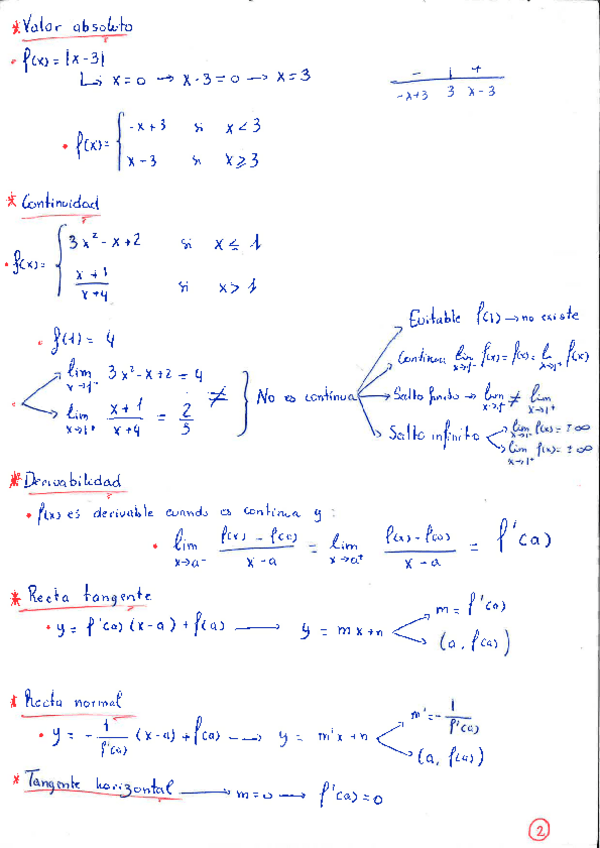 * Valor absoluto
• f(x) = |x-3|
↳ x=0 → x-3=0 → x=3
- | +
-x+3 3 x-3
• f(x) = { -x+3 si x < 3
x-3 si x ≥ 3
* Continuidad
• f(x) = { 3x² - x + 2 si x ≤ 1
(x+1)/(x+4) si x > 1
• f(1) = 4
• lim x→1⁻ 3x²-x+2 = 4
lim x→1⁺ (x+1)/(x+4) = 2/5
≠ } No es continua
Evitable f(1) → no existe
Continua lim x→1⁻ f(x) = f(x) = lim x→1⁺ f(x)
Salto finito → lim x→1⁻ ≠ lim x→1⁺
Salto infinito → lim x→1⁻ f(x) = ±∞
→ lim x→1⁺ f(x) = ±∞
* Derivabilidad
• f(x) es derivable cuando es continua y :
• lim x→a⁻ (f(x) - f(a))/(x-a) = lim x→a⁺ (f(x) - f(a))/(x-a) = f'(a)
* Recta tangente
• y = f'(a) (x-a) + f(a) → y = mx+n
m = f'(a)
(a, f(a))
* Recta normal
• y = - 1/f'(a) (x-a) + f(a) → y = m'x+n
m' = - 1/f'(a)
(a, f(a))
* Tangente horizontal → m=0 → f'(a)=0
2